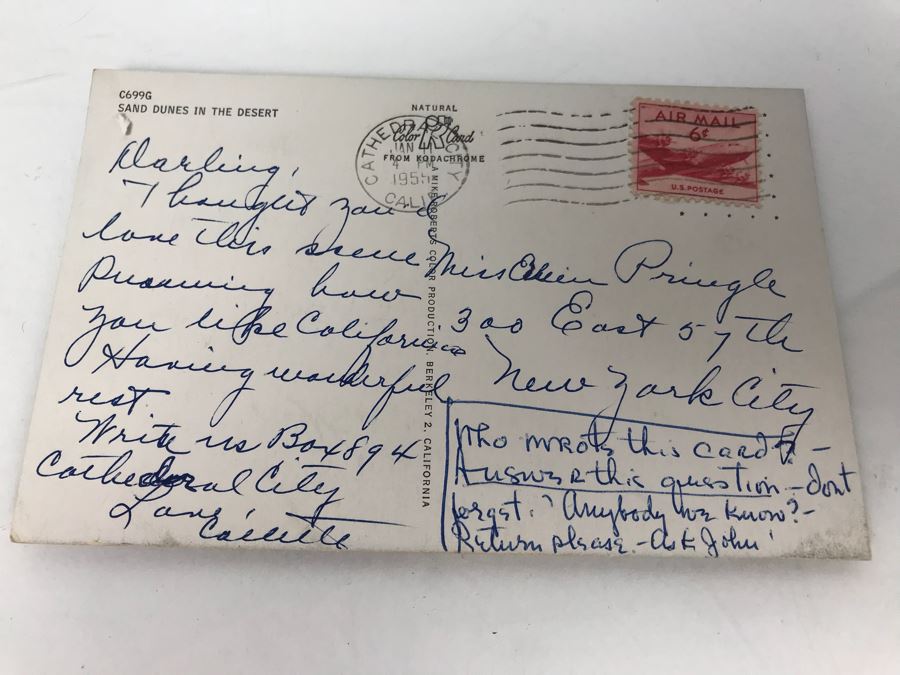 C699G
SAND DUNES IN THE DESERT
NATURAL
Color Card
FROM KODACHROME
CATHEDRAL CITY
JAN
4 PM
1955
CALIF
AIR MAIL
6¢
U.S. POSTAGE
A MIKE ROBERTS COLOR PRODUCTION, BERKELEY 2, CALIFORNIA
Darling,
Thought you'd
love this scene
knowing how
you like California
Having wonderful
rest
Write us Box 894
Cathedral City
Love,
Collette
Miss Ellen Pringle
300 East 57th
New York City
Who wrote this card? -
Answer this question - dont
forget. Anybody we know? -
Return please. - Ask John!